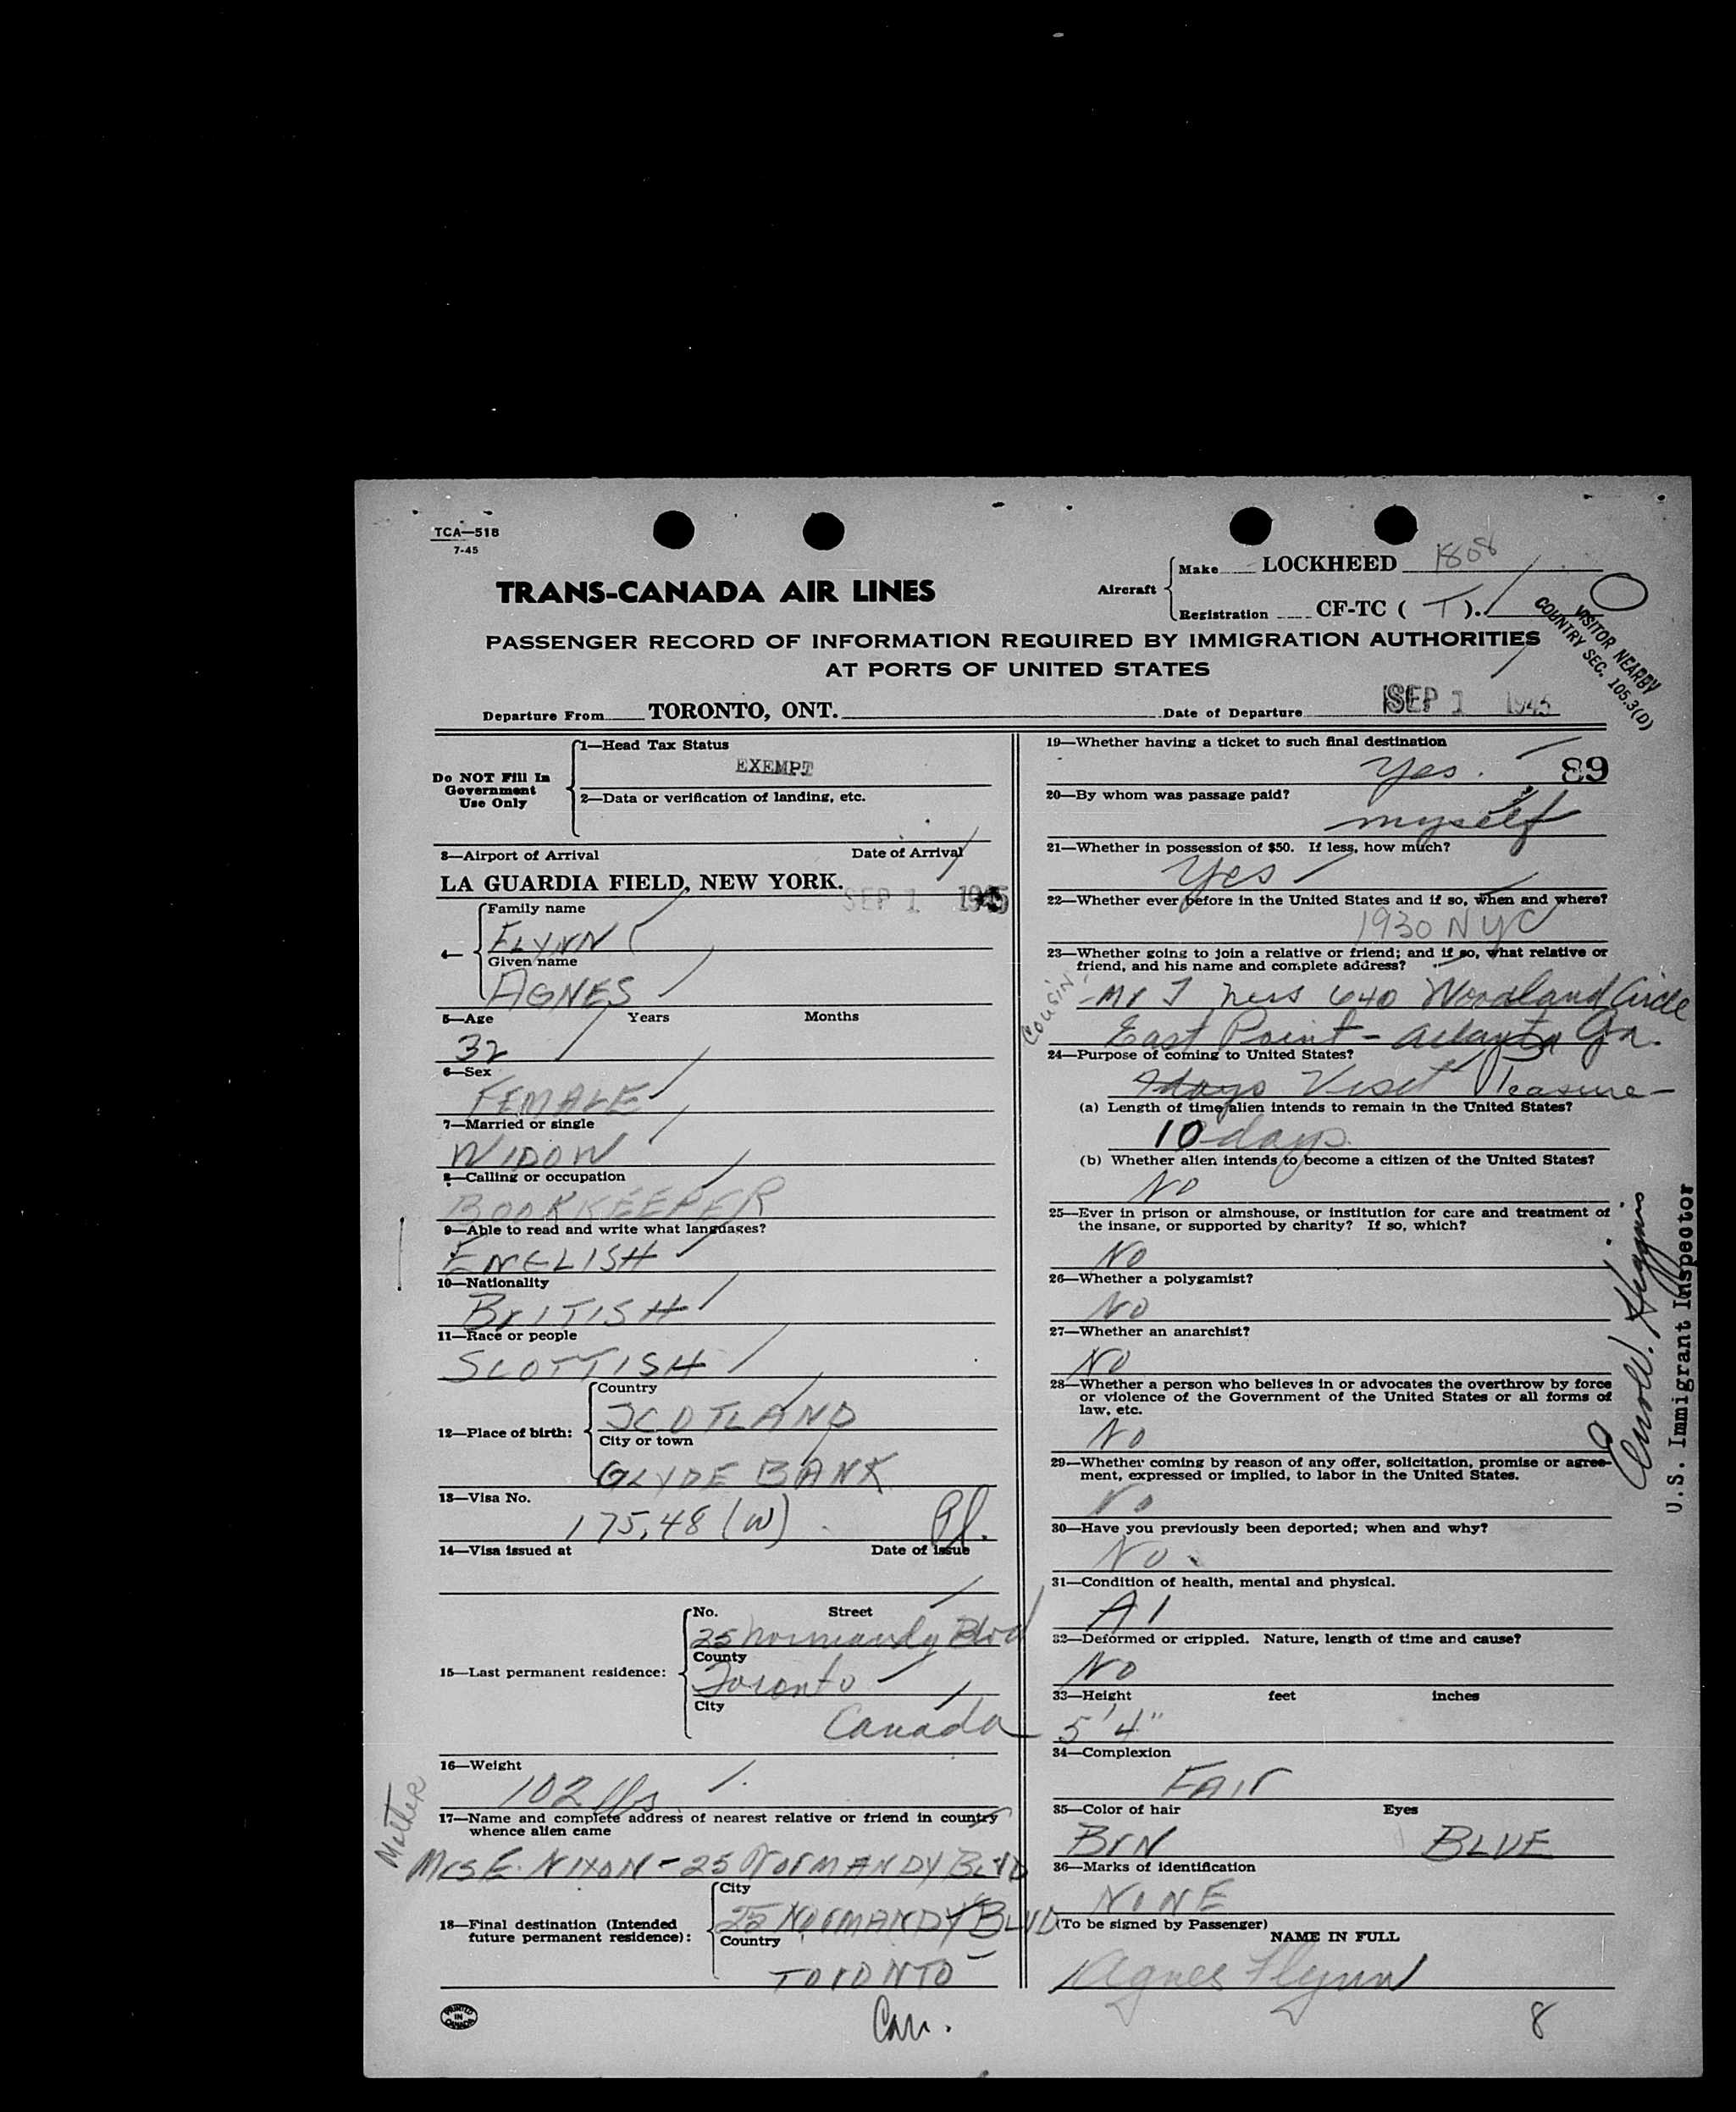 TCA—518
7-45
TRANS-CANADA AIR LINES
Aircraft
Make LOCKHEED 1808
Registration CF-TC ( T ).
VISITOR NEARBY
COUNTRY SEC. 105.3(D)
PASSENGER RECORD OF INFORMATION REQUIRED BY IMMIGRATION AUTHORITIES
AT PORTS OF UNITED STATES
Departure From TORONTO, ONT. Date of Departure SEP 1 1945
Do NOT Fill In
Government
Use Only
1—Head Tax Status
EXEMPT
2—Data or verification of landing, etc.
3—Airport of Arrival Date of Arrival
LA GUARDIA FIELD, NEW YORK. SEP 1 1945
4—
Family name
FLYNN
Given name
AGNES
5—Age Years Months
32
6—Sex
FEMALE
7—Married or single
WIDOW
8—Calling or occupation
BOOKKEEPER
9—Able to read and write what languages?
ENGLISH
10—Nationality
BrITISH
11—Race or people
SCOTTISH
12—Place of birth:
Country
SCOTLAND
City or town
GLYDE BANK
13—Visa No.
175.48 (W)
14—Visa issued at Date of issue
15—Last permanent residence:
No. Street
25 Normandy Blvd
County
Toronto
City
Canada
16—Weight
102 lbs
17—Name and complete address of nearest relative or friend in country
whence alien came
Mother
Mrs E. NIXON - 25 NorMANDY BLVD
18—Final destination (Intended
future permanent residence):
City
25 NorMANDY BLVD
Country
TORONTO
Can.
PRINTED
IN
CANADA
19—Whether having a ticket to such final destination
Yes. 89
20—By whom was passage paid?
myself
21—Whether in possession of $50. If less, how much?
Yes
22—Whether ever before in the United States and if so, when and where?
1930 NYC
23—Whether going to join a relative or friend; and if so, what relative or
friend, and his name and complete address?
COUSIN
Mr J Ness 640 Woodland Circle
East Point - Atlanta Ga.
24—Purpose of coming to United States?
Visit Pleasure
(a) Length of time alien intends to remain in the United States?
10 days
(b) Whether alien intends to become a citizen of the United States?
NO
25—Ever in prison or almshouse, or institution for care and treatment of
the insane, or supported by charity? If so, which?
NO
26—Whether a polygamist?
NO
27—Whether an anarchist?
NO
28—Whether a person who believes in or advocates the overthrow by force
or violence of the Government of the United States or all forms of
law, etc.
NO
29—Whether coming by reason of any offer, solicitation, promise or agree-
ment, expressed or implied, to labor in the United States.
No
30—Have you previously been deported; when and why?
NO.
31—Condition of health, mental and physical.
A1
32—Deformed or crippled. Nature, length of time and cause?
NO
33—Height feet inches
5' 4"
34—Complexion
FAIr
35—Color of hair Eyes
BrN BLUE
36—Marks of identification
NONE
(To be signed by Passenger)
NAME IN FULL
Agnes Flynn
8
U.S. Immigrant Inspector